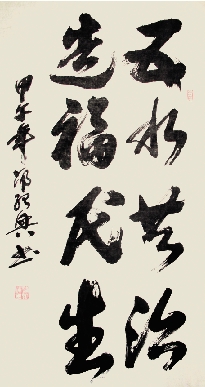 五水共治
造福民生
甲午年邵绍兴书